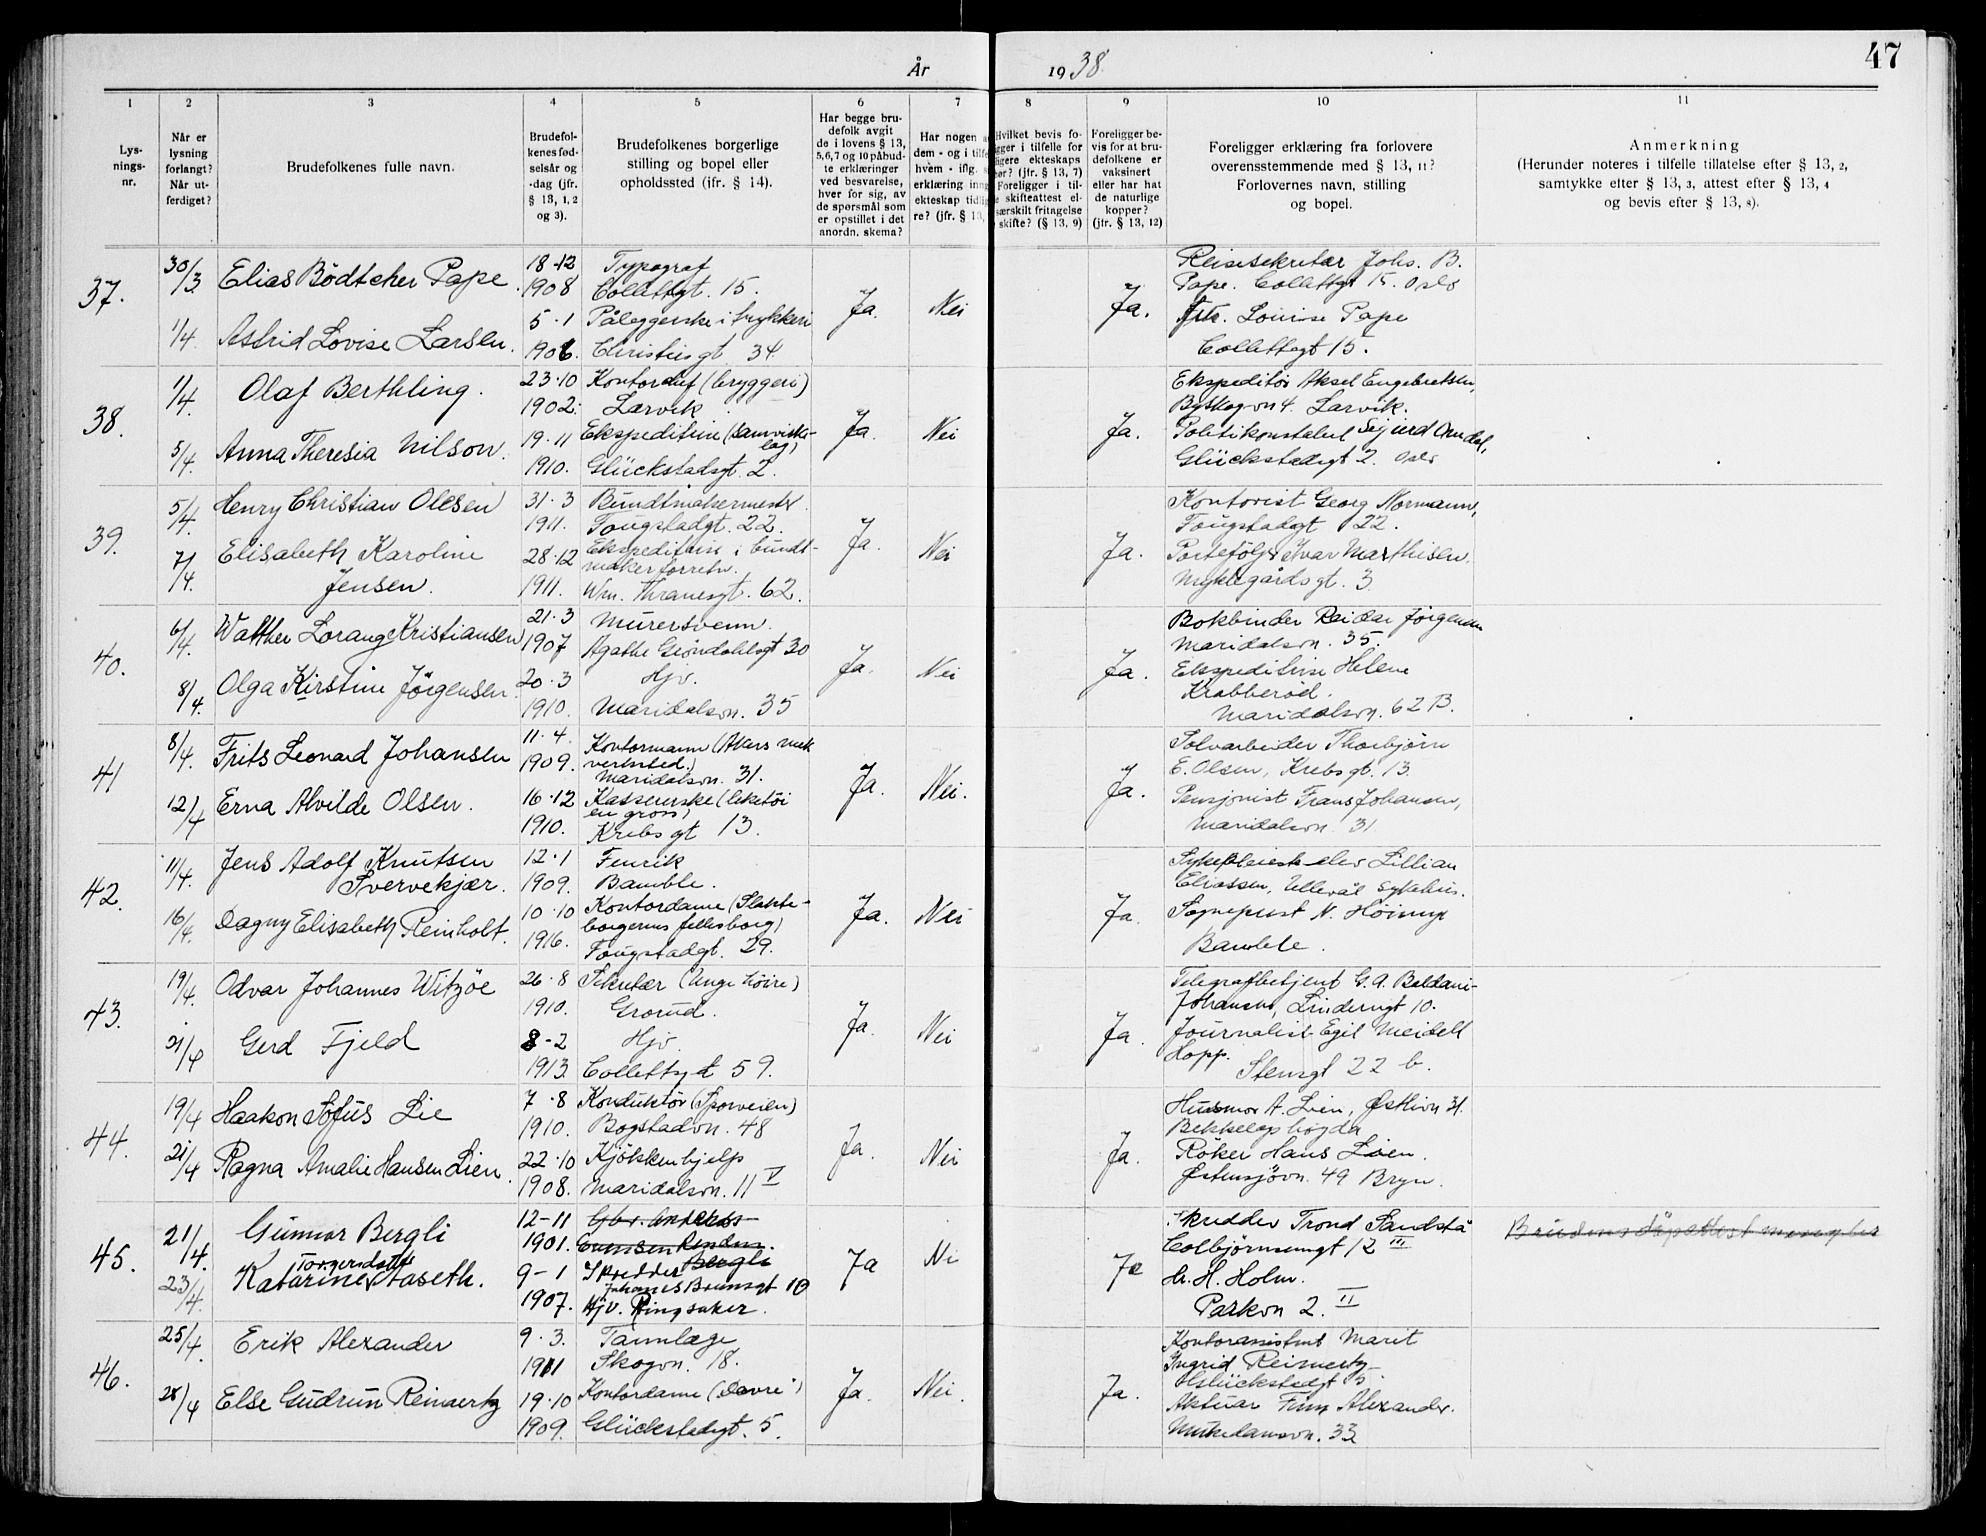 47
År 1938.
1 2 3 4 5 6 7 8 9 10 11
Lys-
nings-
nr.
Når er
lysning
forlangt?
Når ut-
ferdiget?
Brudefolkenes fulle navn.
Brudefol-
kenes fød-
selsår og
-dag (jfr.
§ 13, 1, 2
og 3).
Brudefolkenes borgerlige
stilling og bopel eller
opholdssted (jfr. § 14).
Har begge bru-
defolk avgit
de i lovens § 13,
5, 6, 7 og 10 påbud-
te erklæringer
ved besvarelse,
hver for sig, av
de spørsmål som
er opstillet i det
anordn. skema?
Har nogen a
dem - og i tilfe
hvem - iflg. s
erklæring inng
ekteskap tidlig
re? (jfr. § 13,
Hvilket bevis fo-
gger i tilfelle for
ligere ekteskaps
ør? (jfr. § 13, 7)
Foreligger i til-
e skifteattest el-
særskilt fritagelse
skifte? (§ 13, 9)
Foreligger be-
vis for at bru-
defolkene er
vaksinert
eller har hat
de naturlige
kopper?
(jfr. § 13, 12)
Foreligger erklæring fra forlovere
overensstemmende med § 13, 11?
Forlovernes navn, stilling
og bopel.
Anmerkning
(Herunder noteres i tilfelle tillatelse efter § 13, 2,
samtykke efter § 13, 3, attest efter § 13, 4
og bevis efter § 13, 8).
37.
30/3 Elias Bödtcher Pape
18-12
1908
Typograf
Collettgt. 15.
1/4 Astrid Lovise Larsen.
5·1
1906.
Påleggerske i trykkeri
Christiesgt 34
Ja. Nei Ja.
Reisesekretær Johs. B.
Pape. Collettgt 15. Oslo
Frk. Louise Pape
Collettsgt 15.
38.
1/4 Olaf Berthling.
23·10
1902.
Kontorchef (bryggeri)
Larvik.
5/4. Anna Theresia Nilson.
19·11
1910.
Ekspeditrise (Samvirke-
lag)
Glückstadsgt. 2.
Ja. Nei Ja.
Ekspeditör Aksel Engebretsen,
Byskogvn 4. Larvik.
Politikonstabel Sigurd Omdal,
Glückstadsgt 2. Oslo
39.
5/4. Henry Christian Olesen
31·3
1911.
Bundtmakermester
Fougstadgt. 22.
7/4. Elisabeth Karoline
Jensen.
28·12
1911.
Ekspeditrise i bundt-
makerforretn.
Wm. Thranesgt. 62.
Ja. Nei Ja.
Kontorist Georg Normann,
Fougstadgt 22.
Portefölje Ivar Marthisen
Myklegårdsgt. 3
40.
6/4. Walther Lorang Kristiansen
21·3
1907
Murersvenn.
Agathe Gröndahlsgt 30
8/4. Olga Kirstine Jörgensen.
20·3
1910.
Hjv.
Maridalsvn. 35
Ja. Nei Ja.
Bokbinder Reidar Jörgensen
Maridalsvn. 35.
Ekspeditrise Helene
Krabberöd.
Maridalsvn. 62 B.
41
8/4. Frits Leonard Johansen
11·4.
1909.
Kontormann (Akers mek
verksted.)
Maridalsvn. 31.
12/4 Erna Alvilde Olsen.
16·12
1910.
Kassererske (leketöi
en gross)
Krebsgt 13.
Ja. Nei. Ja.
Sølvarbeider Thorbjörn
E. Olsen, Krebsgt. 13.
Pensjonist Frans Johansen,
Maridalsvn 31
42.
11/4. Jens Adolf Knutsen
Svervekjær.
12·1
1909.
Fenrik
Bamble.
16/4. Dagny Elisabeth Reinholt.
10·10
1916.
Kontordame (Slakte-
borgernes fellesborg)
Fougstadgt. 29.
Ja. Nei Ja.
Sykepleierskeelev Lillian
Eliassen, Ullevål sykehus.
Sogneprest N. Höirup
Bamble.
43.
19/4. Odvar Johannes Witzöe
26·8
1910.
Sekretær (Unge Höire)
Grorud.
21/4 Gerd Fjeld
8-2
1913.
Hjv.
Collettsgt 59.
Ja. Nei Ja.
Telegrafbetjent G. A. Baldani-
Johansen, Linderngt 10.
Journalist Egil Meidell
Hopp.
Stensgt 22 b.
44.
19/4 Haakon Sofus Lie
7·8
1910.
Konduktör (Sporveien)
Bogstadvn. 48
21/4 Ragna Amalie Hansen Lien.
22·10
1908.
Kjökkenhjelp
Maridalsvn. 11 V
Ja. Nei Ja.
Husmor A. Lien, Østlivn 31.
Bekkelagshögda
Röker Hans Lien.
Østensjövn. 49 Bryn.
45.
21/4. Gunnar Bergli
12-11
1901.
Skredder Bergli
Johannes Brunsgt 10
23/4. Torgersdatter
Katarine Aaseth.
9-1
1907.
Hjv. Ringsaker.
Ja Nei Ja
Skredder Trond Sandstå
Colbjörnsensgt 12 III
Hr. H. Holm.
Parkvn 2. II
Brudens dåpsattest mangler
46.
25/4. Erik Alexander
9·3.
1911
Tannlæge
Skogvn. 18.
28/4 Else Gudrun Reinertz
19·10
1909.
Kontordame ("Davre")
Glückstadgt. 5.
Ja. Nei. Ja.
Kontorassistent Marit
Ingrid Reinertz
Glückstadgt 5
Aktuar Finn Alexander.
Munkedamsvn. 33